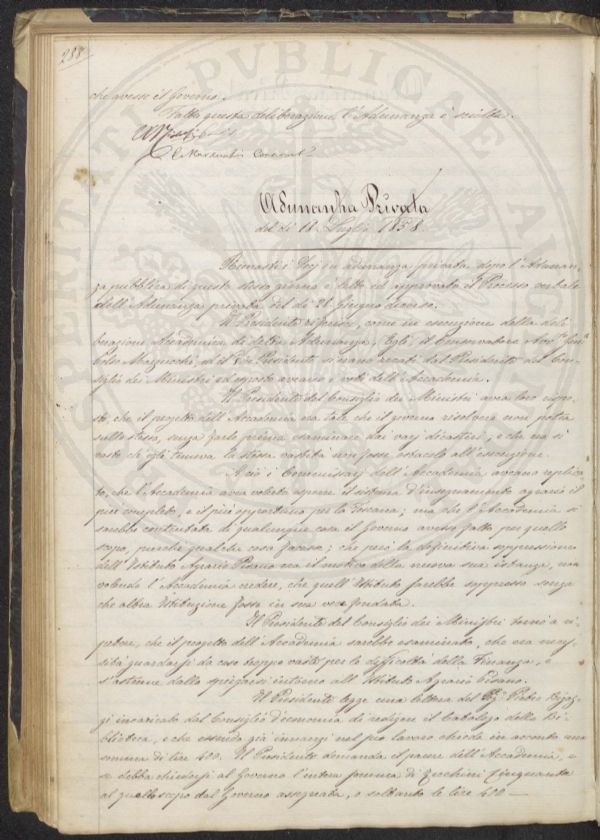 288
che avesse il Governo.
Fatta questa deliberazione l'Adunanza è sciolta.
Adunanza Privata
del dì 18 Luglio 1858
Rimasti i Sozj in adunanza privata dopo l'Adunan-
za pubblica di questo stesso giorno è letto ed approvato il Processo verbale
dell'Adunanza privata del dì 26 Giugno decorso.
Il Presidente riferisce, come in esecuzione della deli-
berazione Accademica di detta Adunanza, Egli, il Conservatore
ed il Vice Presidente si siano recati dal Presidente del Con-
siglio dei Ministri ed esposto avesse i voti dell'Accademia.
Il Presidente del Consiglio dei Ministri avea loro rispo-
sto, che il progetto dell'Accademia era tale che il governo risolvere non potea
sullo stesso, senza farlo prima esaminare dai varj dicasteri, e che era sì
vasto che egli temeva la stessa vastità non fosse ostacolo all'esecuzione.
A ciò i Commissarj dell'Accademia aveano replica-
to, che l'Accademia avea voluto esporre il sistema d'insegnamento agrario il
più completo, e il più opportuno per la Toscana; ma che l'Accademia si
sarebbe contentata di qualunque cosa il Governo avesse fatto per quello
scopo, purchè qualche cosa facesse; che però la definitiva soppressione
dell'Istituto Agrario Pisano era il motivo della nuova sua istanza, non
volendo l'Accademia credere, che quell'Istituto sarebbe soppresso senza
che altra Istituzione fosse in sua vece fondata.
Il Presidente del Consiglio dei Ministri tornò a ri-
petere, che il progetto dell'Accademia sarebbe esaminato, che era neces-
sità guardarsi da cose troppo vaste per le difficoltà della Finanza, e
s'astenne dallo spiegarsi intorno all'Istituto Agrario Pisano.
Il Presidente legge una lettera del Sig. Pietro Bigaz-
zi incaricato dal Consiglio d'economia di redigere il Catalogo della Bi-
blioteca, e che essendo già innanzi nel suo lavoro chiede in acconto una
somma di lire 400. Il Presidente domanda il parere dell'Accademia, e
se debba chiedersi al Governo l'intera somma di Zecchini Cinquanta
a quello scopo dal Governo assegnata, o soltanto le lire 400 —